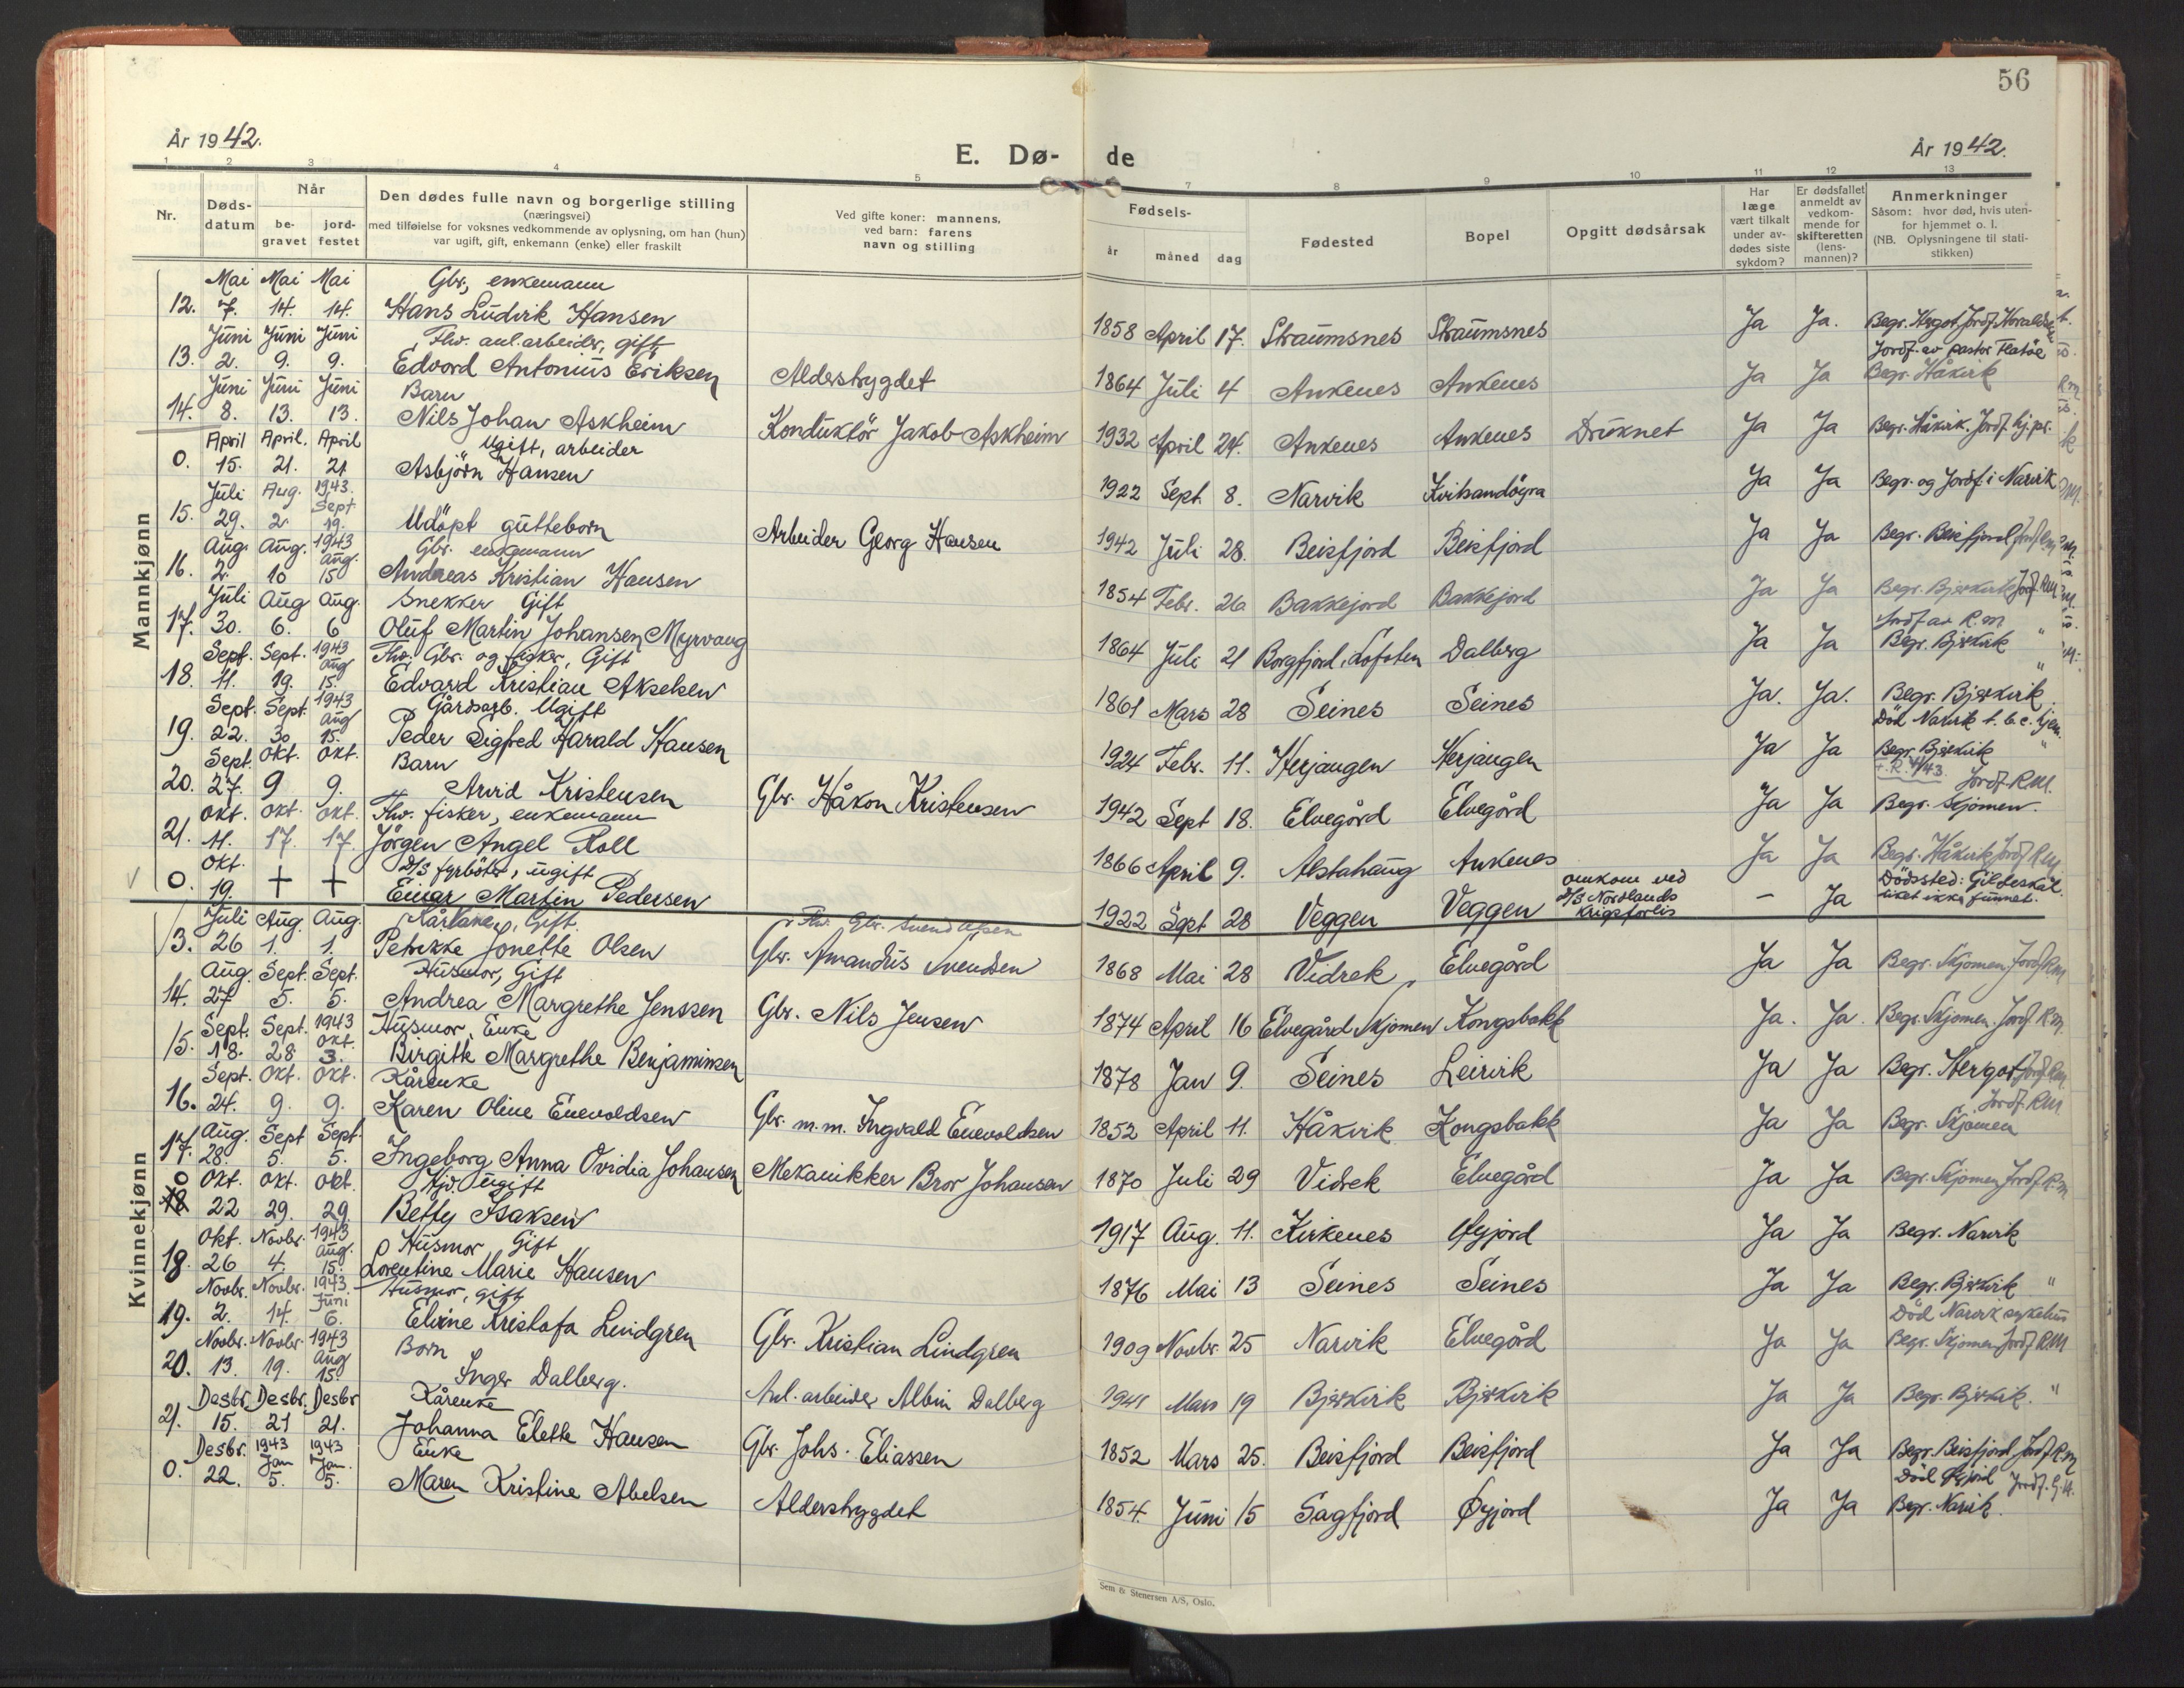 56
År 1942.
E. Dø-
de
År 1942.
1 2 3 4 5 7 8 9 10 11 12 13
Nr.
Døds-
datum
Når
be-
gravet
jord-
festet
Den dødes fulle navn og borgerlige stilling
(næringsvei)
med tilføielse for voksnes vedkommende av oplysning, om han (hun)
var ugift, gift, enkemann (enke) eller fraskilt
Ved gifte koner: mannens,
ved barn: farens
navn og stilling
Fødsels-
år måned dag
Fødested
Bopel
Opgitt dødsårsak
Har
læge
vært tilkalt
under av-
dødes siste
sykdom?
Er dødsfallet
anmeldt av
vedkom-
mende for
skifteretten
(lens-
mannen)?
Anmerkninger
Såsom: hvor død, hvis uten-
for hjemmet o. l.
(NB. Oplysningene til stati-
stikken)
Mannkjønn
Mai Mai Mai Gbr, enkemann
12. 7. 14. 14. Hans Ludvik Hansen 1858 April 17. Straumsnes Straumsnes Ja Ja. Begr. Hergot Jordf.
Juni Juni Juni Fhv. anl.arbeider, gift Jordf. av pastor Flatøe
13. 2. 9. 9. Edvard Antonius Eriksen Alderstrygdet 1864 Juli 4 Ankenes Ankenes Ja Ja Begr. Håkvik
Juni Juni Juni Barn
14. 8. 13. 13. Nils Johan Askheim Konduktör Jakob Askheim 1932 April 24. Ankenes Ankenes Druknet Ja Ja Begr. Håkvik. Jordf. hj.pr.
April April. April Ugift, arbeider
0. 15. 21. 21 Asbjörn Hansen 1922 Sept. 8. Narvik Kvitsandöyra Ja Ja Begr. og Jordf. i Narvik
Juli Aug. 1943. Sept
15. 29. 2. 19. Udöpt guttebarn Arbeider Georg Hansen 1942 Juli 28. Beisfjord Beisfjord Ja Ja Begr. Beisfjord Jordf. R.M
Aug. Aug. 1943 Aug. Gbr. enkemann
16. 2. 10 15 Andreas Kristian Hansen 1854 Febr. 26 Bakkejord Bakkejord Ja Ja Begr. Bjerkvik Jordf. R.M
Juli Aug Aug. Snekker Gift Jordf av R.M
17. 30. 6. 6 Oluf Martin Johansen Myrvang 1864 Juli 21 Borgfjord, Lofoten Dalberg Ja Ja Begr. Bjerkvik "
Sept. Sept. 1943 Aug Fhv. Gbr. og fisker, Gift
18. 11. 19. 15. Edvard Kristian Akselsen 1861 Mars 28 Seines Seines Ja. Ja. Begr. Bjerkvik "
Sept. Sept. 1943 Aug Gårdsarb. Ugift Död Narvik t.b.c. hjem.
19. 22. 30 15. Peder Sigfred Harald Hansen 1924 Febr. 11. Herjangen Herjangen Ja Ja Begr. Bjerkvik "
Sept. Okt. Okt. Barn Jordf. R.M.
20. 27. 9 9. Arvid Kristensen Gbr. Håkon Kristensen 1942 Sept 18. Elvegård Elvegård Ja Ja Begr. Skjomen.
Okt. Okt. Okt. Fhv. fisker, enkemann
21. 11. 17. 17. Jörgen Angel Roll 1866 April 9. Alstahaug Ankenes Ja Ja Begr. Håkvik Jordf R.M
Okt. D/S fyrböter, ugift omkom ved Dödssted: Gildeskål.
0. 19. + + Einar Martin Pedersen 1922 Sept 28 Veggen Veggen D/S Nordlands krigsforlis – Ja Liket ikke funnet.
Kvinnekjønn
Juli Aug. Aug. Kårkone, Gift.
13. 26 1. 1. Petrikke Jonette Olsen Gbr. Amandus Svendsen 1868 Mai 28 Vidrek Elvegård Ja Ja Begr. Skjomen Jordf RM
Aug. Sept. Sept. Husmor, Gift
14. 27 5. 5. Andrea Margrethe Jenssen Gbr. Nils Jensen 1874 April 16 Elvegård Skjomen Kongsbakk Ja. Ja. Begr. Skjomen. Jordf. R.M.
Sept. Sept. 1943 Okt. Husmor, Enke
15. 18. 28 3. Birgitte Margrethe Benjaminsen 1878 Jan 9. Seines Leirvik Ja Ja Begr. Hergot Jordf R.M.
Sept. Okt. Okt. Kårenke Jordf. RM
16. 24. 9. 9. Karen Oline Enevoldsen Gbr. m.m. Ingvald Enevoldsen 1852 April 11. Håkvik Kongsbakk Ja Ja Begr. Skjomen
Aug. Sept Sept.
17. 28. 5. 5. Ingeborg Anna Ovidia Johansen Mekanikker Bror Johansen 1870 Juli 29 Vidrek Elvegård Ja Ja Begr. Skjomen Jordf. R.M
Okt. Okt. Okt. Hjv. Ugift
0 22 29. 29. Betty Isaksen 1917 Aug. 11. Kirkenes Øyjord Ja Ja Begr. Narvik
Okt. Novbr. 1943 Aug. Husmor Gift
18. 26 4. 15. Lorentine Marie Hansen 1876 Mai 13 Seines Seines Ja Ja Begr. Bjerkvik "
Novbr. Novbr. 1943. Juni Husmor, gift Död Narvik sykehus
19. 2. 14. 6. Elvine Kristofa Lindgren Gbr. Kristian Lindgren 1909 Novbr. 25 Narvik Elvegård Ja Ja Begr. Skjomen Jordf RM
Novbr. Novbr. 1943 Aug Barn
20. 13. 19. 15 Inger Dalberg. Anl. arbeider Albin Dalberg 1941 Mars 19 Bjerkvik Bjerkvik Ja Ja Begr. Bjerkvik. "
Desbr. Desbr. Desbr Kårenke
21. 15. 21 21. Johanna Elette Hansen Gbr. Johs. Eliassen 1852 Mars 25. Beisfjord Beisfjord Ja Ja Begr. Beisfjord Jordf R.M
Desbr. 1943 Jan 1943 Jan. Enke Död Øyjord Jordf. G.H.
0. 22. 5. 5. Maren Kristine Abelsen Alderstrygdet 1854. Juni 15 Sagfjord Øyjord Ja Ja Begr. Narvik.
Sem & Stenersen A/S, Oslo.